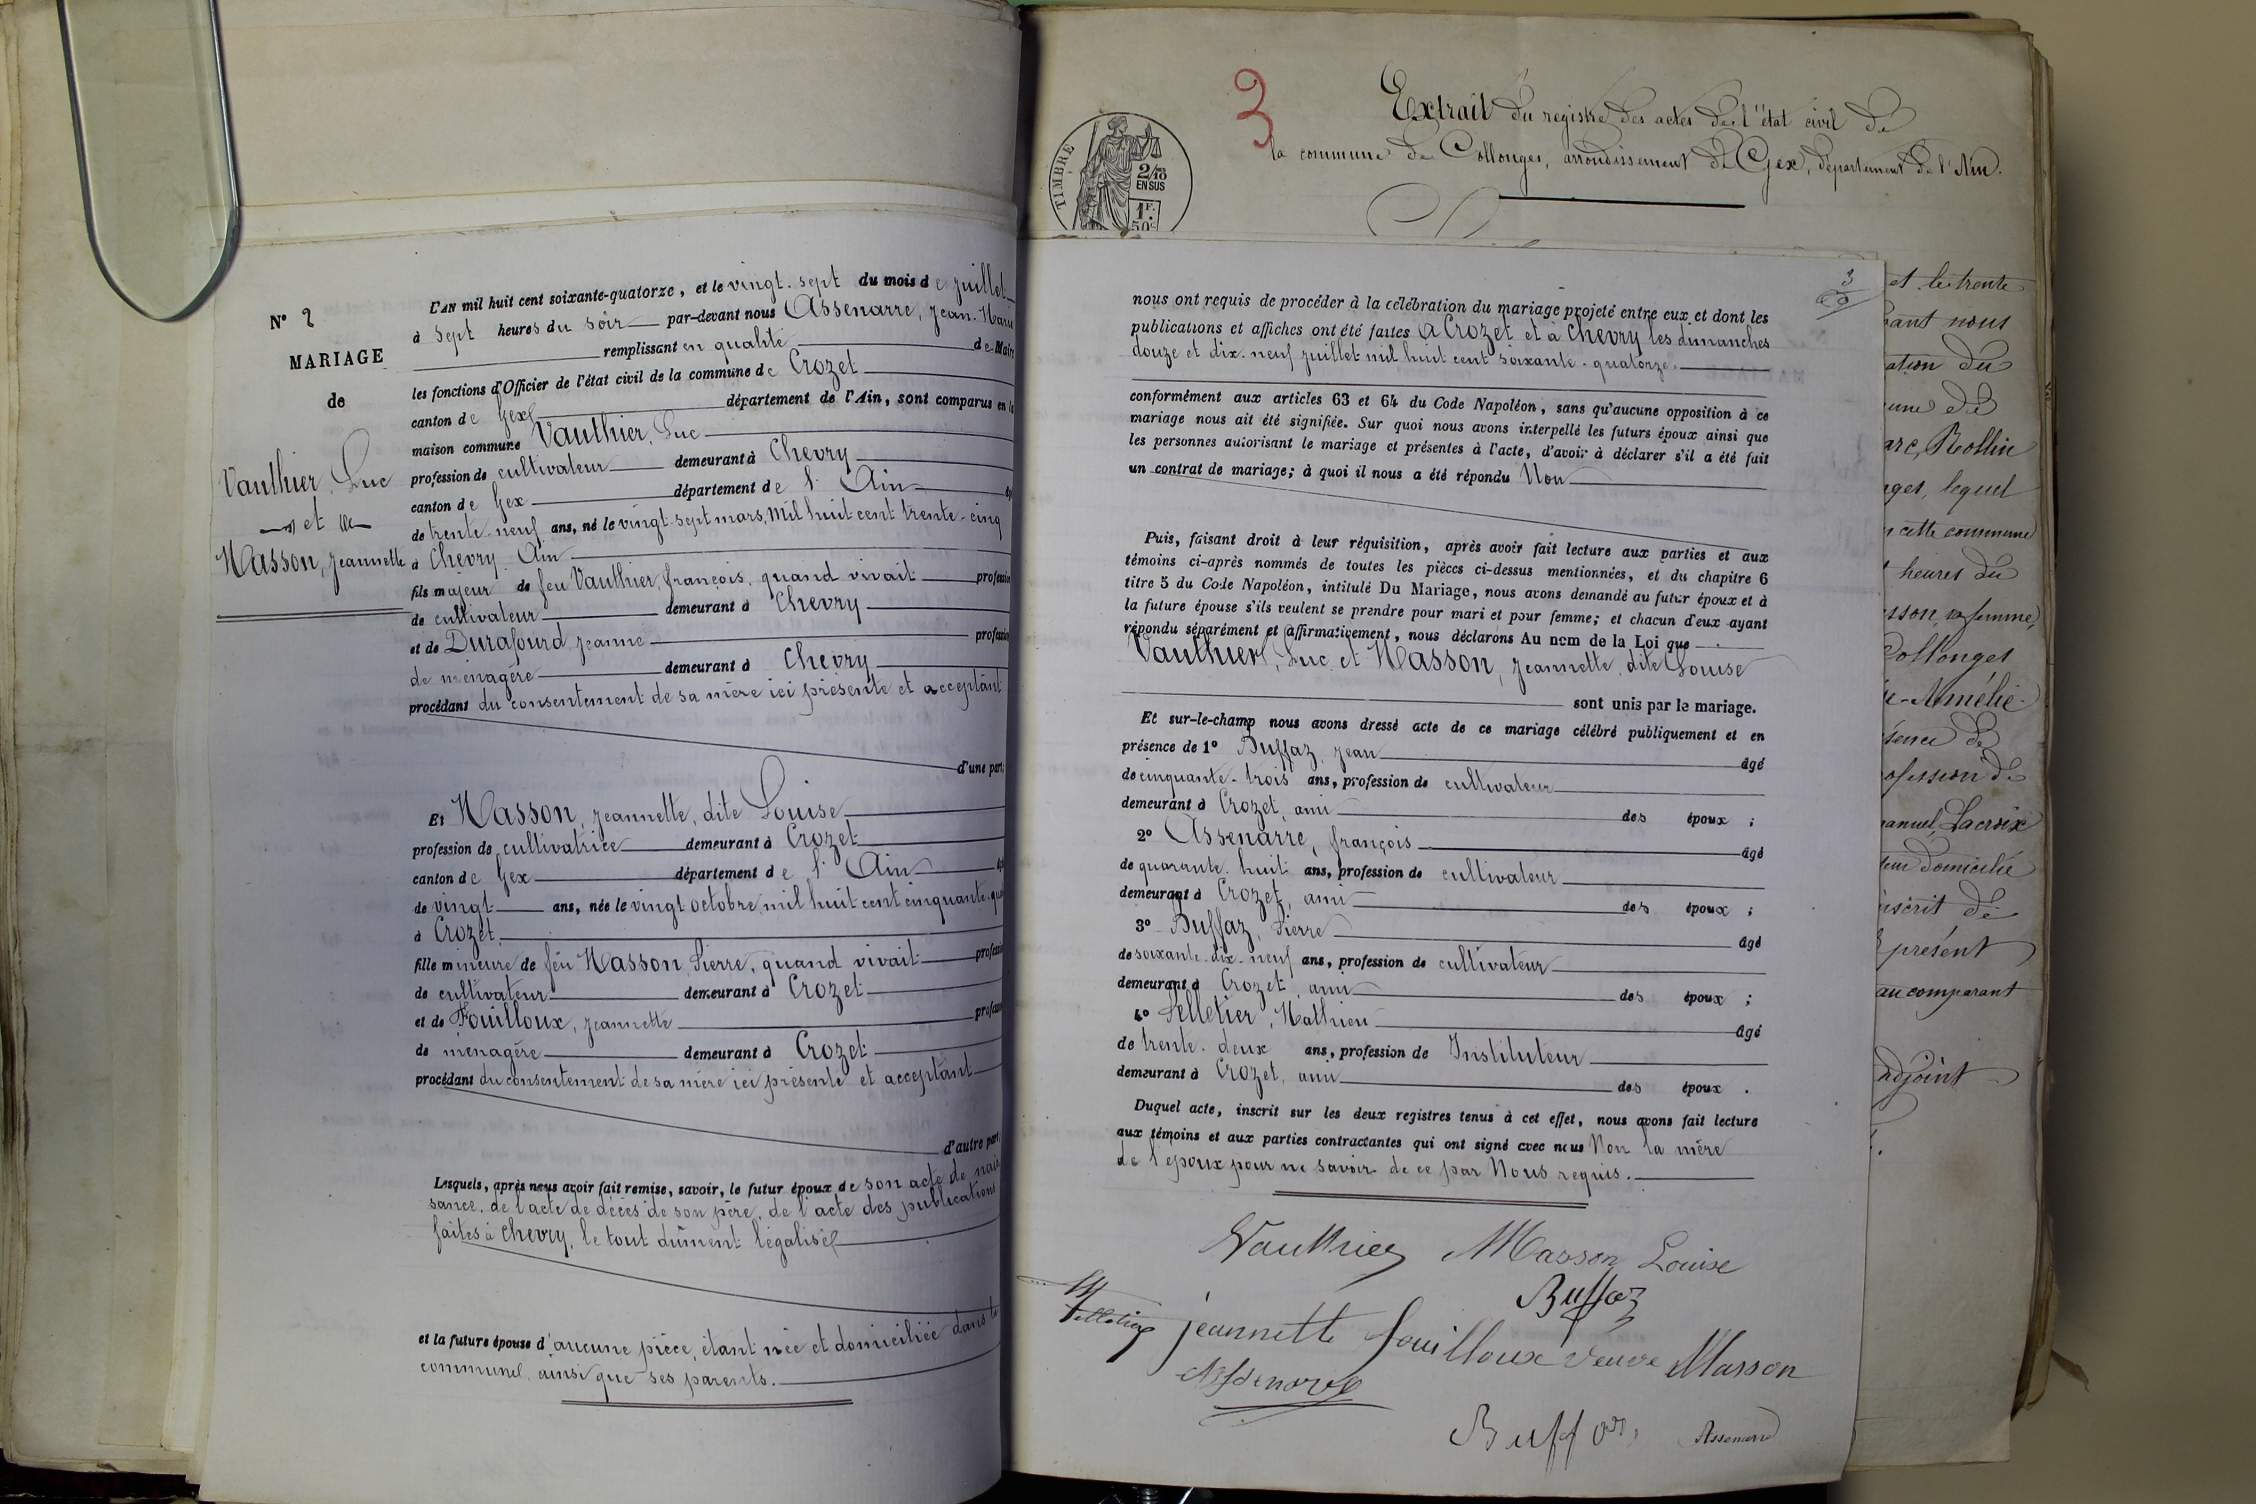 N° 2
MARIAGE
de
Vauthier, Luc
et
Masson, Jeannette
L'AN mil huit cent soixante-quatorze, et le vingt-sept du mois de juillet
à sept heures du soir par-devant nous Assenarre, Jean-Marie
remplissant en qualité de Maire
les fonctions d'Officier de l'état civil de la commune de Crozet
canton de Gex département de l'Ain, sont comparus en la
maison commune Vauthier, Luc
profession de cultivateur demeurant à Chevry
canton de Gex département de l'Ain
de trente-neuf ans, né le vingt-sept mars, mil huit cent trente-cinq
à Chevry. Ain
fils majeur de feu Vauthier, françois, quand vivait profession
de cultivateur demeurant à Chevry
et de Durafourd, jeanne profession
de ménagère demeurant à Chevry
procédant du consentement de sa mère ici présente et acceptant
d'une part.
Et Masson, jeannette, dite Louise
profession de cultivatrice demeurant à Crozet
canton de Gex département de l'Ain
de vingt ans, née le vingt octobre, mil huit cent cinquante-qua
à Crozet,
fille mineure de feu Masson Pierre, quand vivait profession
de cultivateur demeurant à Crozet
et de Fouilloux, jeannette profession
de ménagère demeurant à Crozet
procédant du consentement de sa mère ici présente et acceptant
d'autre part.
Lesquels, après nous avoir fait remise, savoir, le futur époux de son acte de nais
sance, de l'acte de décès de son père, de l'acte des publications
faites à Chevry, le tout dûment légalisé
et la future épouse d'aucune pièce, étant née et domiciliée dans la
commune, ainsi que ses parents.
3
Extrait du registre des actes de l'état civil de
la commune de Collonges, arrondissement de Gex, département de l'Ain.
TIMBRE
2/10
EN SUS
1F.
50c
3
nous ont requis de procéder à la célébration du mariage projeté entre eux et dont les
publications et affiches ont été faites à Crozet et à Chevry les dimanches
douze et dix-neuf juillet mil huit cent soixante-quatorze.
conformément aux articles 63 et 64 du Code Napoléon, sans qu'aucune opposition à ce
mariage nous ait été signifiée. Sur quoi nous avons interpellé les futurs époux ainsi que
les personnes autorisant le mariage et présentes à l'acte, d'avoir à déclarer s'il a été fait
un contrat de mariage; à quoi il nous a été répondu Non
Puis, faisant droit à leur réquisition, après avoir fait lecture aux parties et aux
témoins ci-après nommés de toutes les pièces ci-dessus mentionnées, et du chapitre 6
titre 5 du Code Napoléon, intitulé Du Mariage, nous avons demandé au futur époux et à
la future épouse s'ils veulent se prendre pour mari et pour femme; et chacun d'eux ayant
répondu séparément et affirmativement, nous déclarons Au nom de la Loi que
Vauthier, Luc et Masson, jeannette dite Louise
sont unis par le mariage.
Et sur-le-champ nous avons dressé acte de ce mariage célébré publiquement et en
présence de 1° Buffaz, jean âgé
de cinquante-trois ans, profession de cultivateur
demeurant à Crozet, ami des époux ;
2° Assenarre, françois âgé
de quarante-huit ans, profession de cultivateur
demeurant à Crozet, ami des époux ;
3° Buffaz, Pierre âgé
de soixante-dix-neuf ans, profession de cultivateur
demeurant à Crozet, ami des époux ;
4° Pelletier, Mathieu âgé
de trente-deux ans, profession de Instituteur
demeurant à Crozet, ami des époux .
Duquel acte, inscrit sur les deux registres tenus à cet effet, nous avons fait lecture
aux témoins et aux parties contractantes qui ont signé avec nous Non la mère
de l'époux pour ne savoir de ce par Nous requis.
Vauthier Masson Louise
Buffaz
Pelletier jeannette fouilloux veuve Masson
Assenarre
Buffaz Assenarre
et le trente
vant nous
ation du
une de
arc, Rollin
ges, lequel
cette commune
heures du
sson, sa femme,
Collonges
-Amélie
sence de
ofession de
anuel Lacroix
teur domicilié
inscrit de
présent
au comparant
adjoint